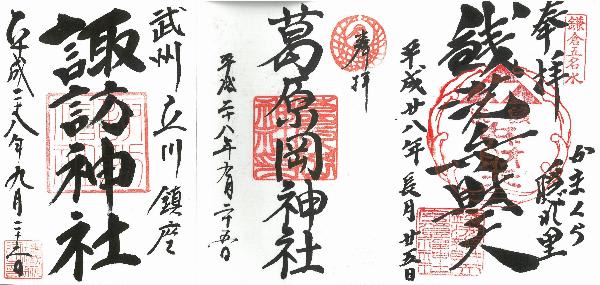 鎌倉五名水
奉拝
かまくら
隠れ里
銭洗弁財天
平成廿八年長月廿五日
奉拝
葛原岡神社
平成二十八年九月二十五日
武州立川鎮座
諏訪神社
平成二十八年九月二十五日